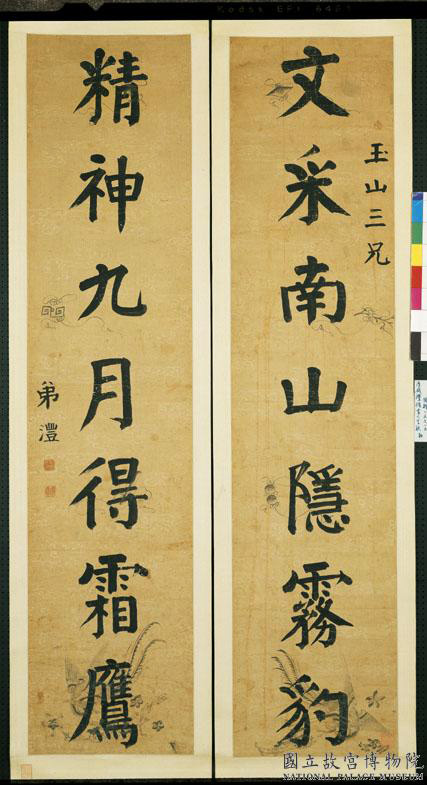 文采南山隱霧豹
玉山三兄
精神九月得霜鷹
弟澧
國立故宮博物院
NATIONAL PALACE MUSEUM